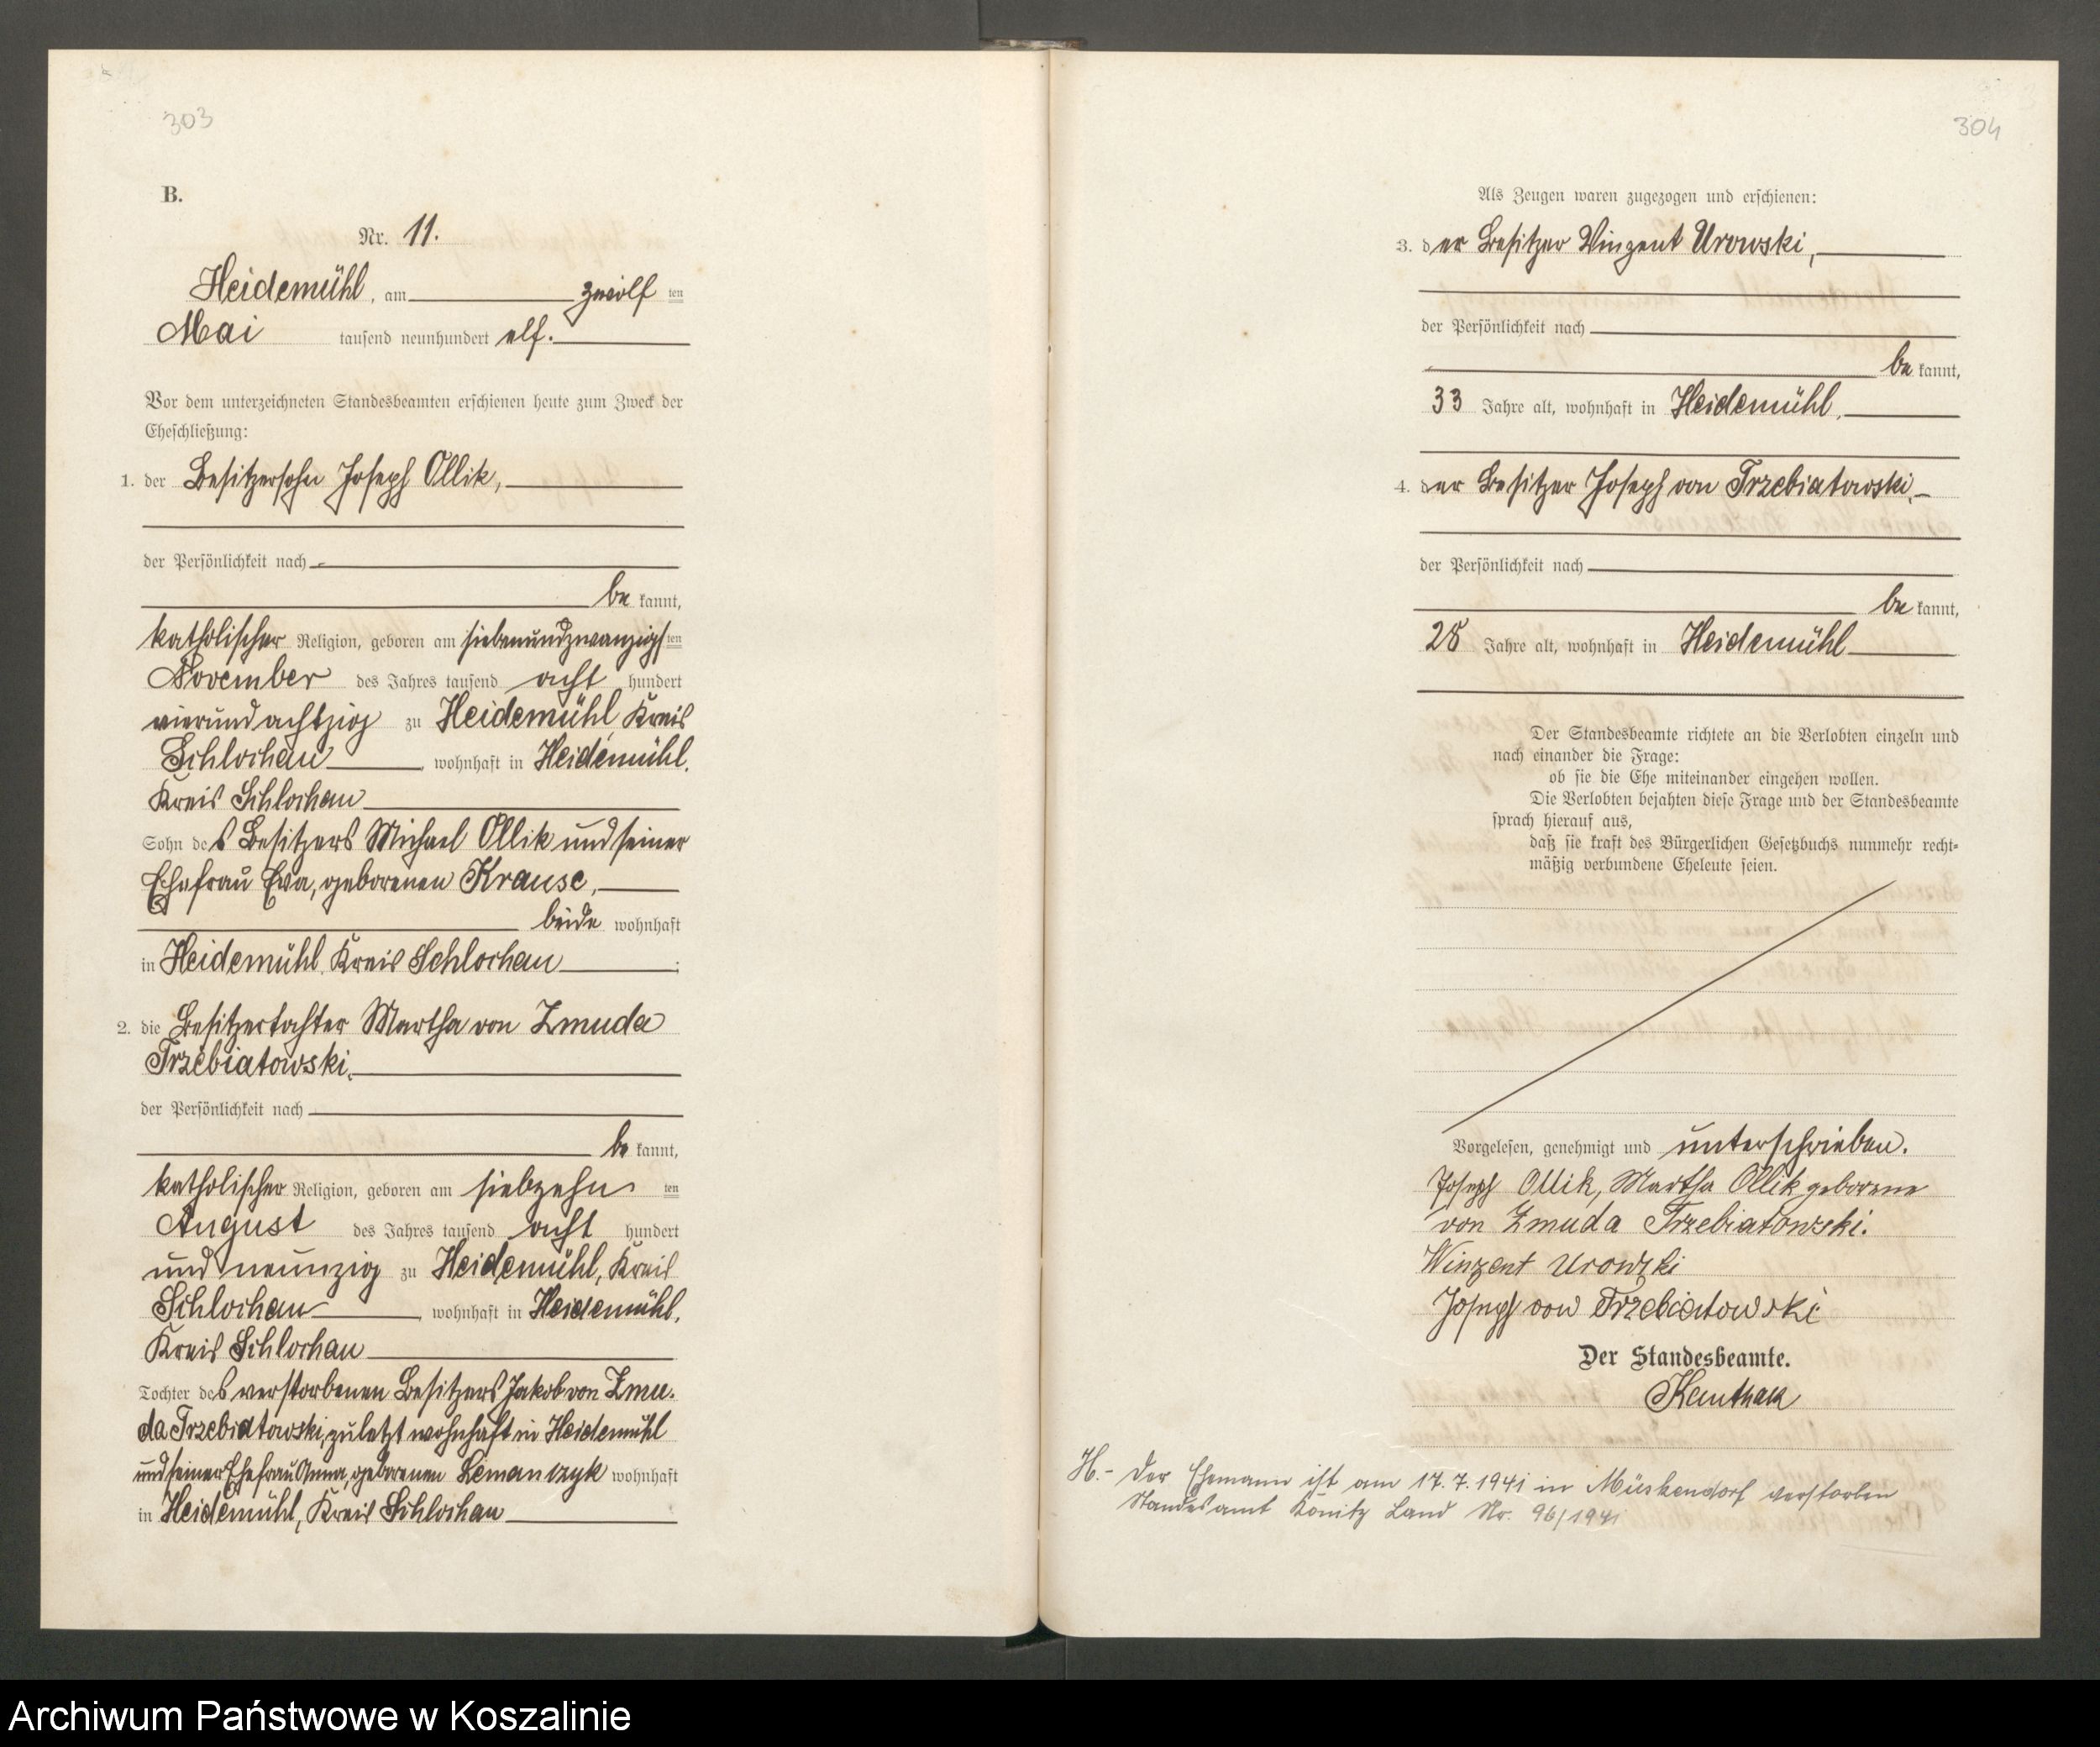 303
B.
Nr. 11.
Heidemühl, am zwölf ten
Mai tausend neunhundert elf.
Vor dem unterzeichneten Standesbeamten erschienen heute zum Zweck der
Eheschließung:
1. der Besitzersohn Joseph Ollik,
der Persönlichkeit nach
be kannt,
katholischer Religion, geboren am siebenundzwanzigsten
November des Jahres tausend acht hundert
vierundachtzig zu Heidemühl, Kreis
Schlochau, wohnhaft in Heidemühl,
Kreis Schlochau
Sohn des Besitzers Michael Ollik und seiner
Ehefrau Eva, geborenen Krause,
beide wohnhaft
in Heidemühl, Kreis Schlochau;
2. die Besitzertochter Martha von Zmuda
Trzebiatowski,
der Persönlichkeit nach
be kannt,
katholischer Religion, geboren am siebzehn ten
August des Jahres tausend acht hundert
und neunzig zu Heidemühl, Kreis
Schlochau, wohnhaft in Heidemühl,
Kreis Schlochau
Tochter des verstorbenen Besitzers Jakob von Zmu-
da Trzebiatowski, zuletzt wohnhaft in Heidemühl
und seiner Ehefrau Anna, geborenen Lemanczyk wohnhaft
in Heidemühl, Kreis Schlochau
304
Als Zeugen waren zugezogen und erschienen:
3. der Besitzer Vinzent Urowski,
der Persönlichkeit nach
be kannt,
33 Jahre alt, wohnhaft in Heidemühl,
4. der Besitzer Joseph von Trzebiatowski,
der Persönlichkeit nach
be kannt,
28 Jahre alt, wohnhaft in Heidemühl
Der Standesbeamte richtete an die Verlobten einzeln und
nach einander die Frage:
ob sie die Ehe miteinander eingehen wollen.
Die Verlobten bejahten diese Frage und der Standesbeamte
sprach hierauf aus,
daß sie kraft des Bürgerlichen Gesetzbuchs nunmehr recht-
mäßig verbundene Eheleute seien.
Vorgelesen, genehmigt und unterschrieben.
Joseph Ollik, Martha Ollik geborene
von Zmuda Trzebiatowski.
Winzent Urowski
Joseph von Trzebiatowski
Der Standesbeamte.
H.- Der Ehemann ist am 17.7.1941 in Müskendorf verstorben
Standesamt Konitz Land Nr. 96/1941
Archiwum Państwowe w Koszalinie